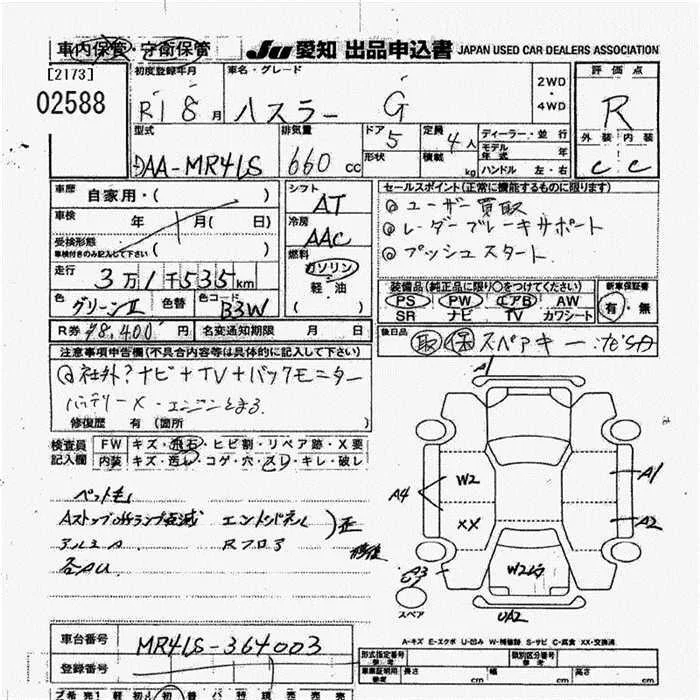 車内保管・守衛保管
JU 愛知 出品申込書 JAPAN USED CAR DEALERS ASSOCIATION
[2173]
02588
初度登録年月 車名・グレード 2WD・4WD 評価点
R1 8月 ハスラー G R
型式 排気量 ドア 5 定員 4人 ディーラー・並行 外装 内装
DAA-MR41S 660cc 形状 積載 kg モデル年式 年 C C
ハンドル 左・右
車歴 自家用・( ) シフト AT
セールスポイント(正常に機能するものに限ります)
車検 年 月( 日) 冷房 AAC
◎ユーザー買取
◎レーダーブレーキサポート
◎プッシュスタート
受検形態 車検付きのみ記入して下さい ( )
燃料 ガソリン 軽・油 ( )
走行 3万1千535km
装備品(純正品に限り○をつけてください) 新車保証書
色 グリーンII 色替 色コード B3W
PS PW エアB AW 有・無
SR ナビ TV カワシート
R券 ¥8,400円 名変通知期限 月 日
後日品 取 保 スペアキー
注意事項申告欄(不具合内容等は具体的に記入して下さい)
◎社外?ナビ+TV+バックモニター
バッテリーX・エンジン
修復歴 有(箇所 )
検査員記入欄 FW キズ・飛石・ヒビ割・リペア跡・X要
内装 キズ・汚レ・コゲ・穴・スレ・キレ・破レ
ペット毛
Aストップoffランプ点滅
アルミA Rフロア
各AU
A1
W2 A1
A4
XX A2
A3
W2
スペア UA2
A-キズ E-エクボ U-凹み W-補修跡 S-サビ C-腐食 XX-交換済
車台番号 MR41S-364003
登録番号
型式指定番号 類別区分番号
車庫証明用 長さ 幅 高さ cm